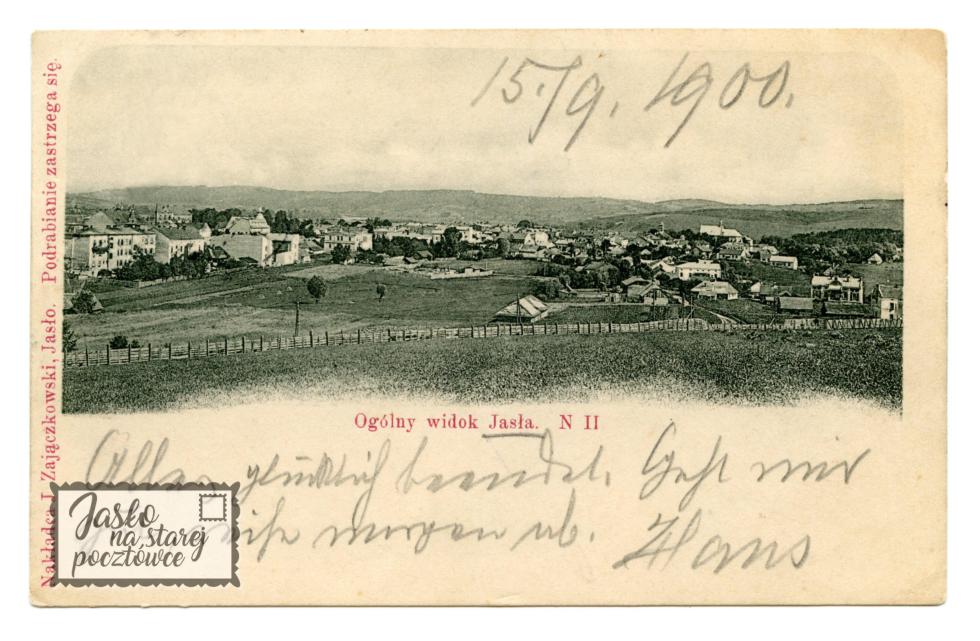 15./9. 1900.
Nakładca J. Zajączkowski, Jasło. Podrabianie zastrzega się.
Ogólny widok Jasła. N II
Alles glücklich beendet. Geht mir
morgen ab. Hans
Jasło
na starej
pocztówce